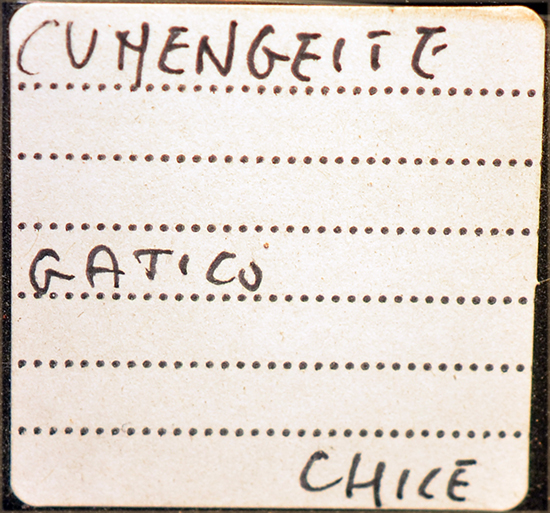 CUMENGEITE
GATICO
CHILE